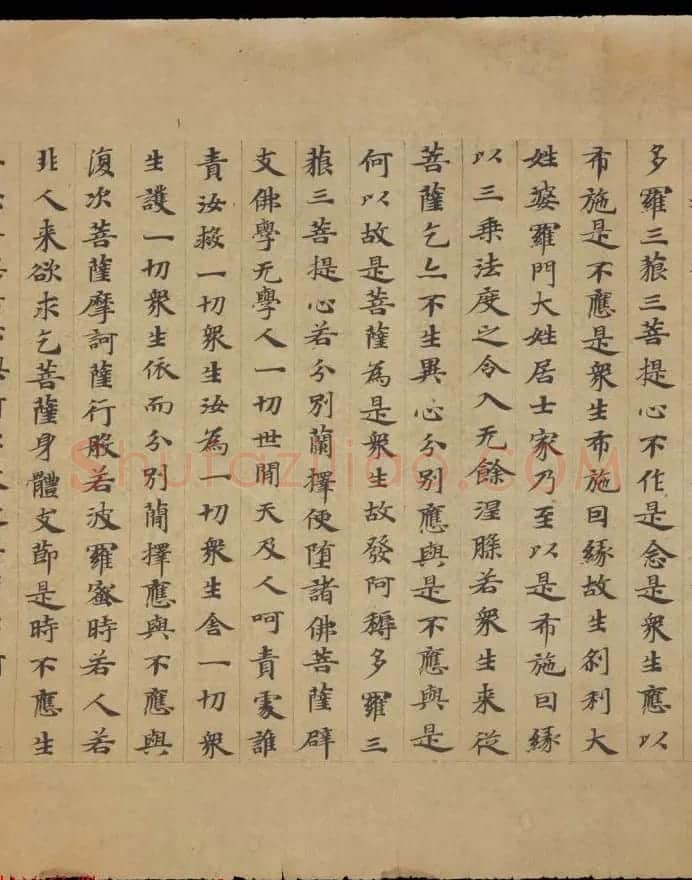 多羅三藐三菩提心不作是念是衆生應以
布施是不應是衆生布施囙縁故生剎利大
姓婆羅門大姓居士家乃至以是布施囙縁
以三乗法度之令入无餘涅槃若衆生来從
菩薩乞亦不生異心分別應與是不應與是
何以故是菩薩為是衆生故發阿耨多羅三
藐三菩提心若分別蕳擇便堕諸佛菩薩辟
支佛學无學人一切世間天及人呵責處誰
責汝救一切衆生汝為一切衆生舍一切衆
生護一切衆生依而分別蕳擇應與不應與
復次菩薩摩訶薩行般若波羅蜜時若人若
非人来欲求乞菩薩身體支節是時不應生
Shutaziliao.COM